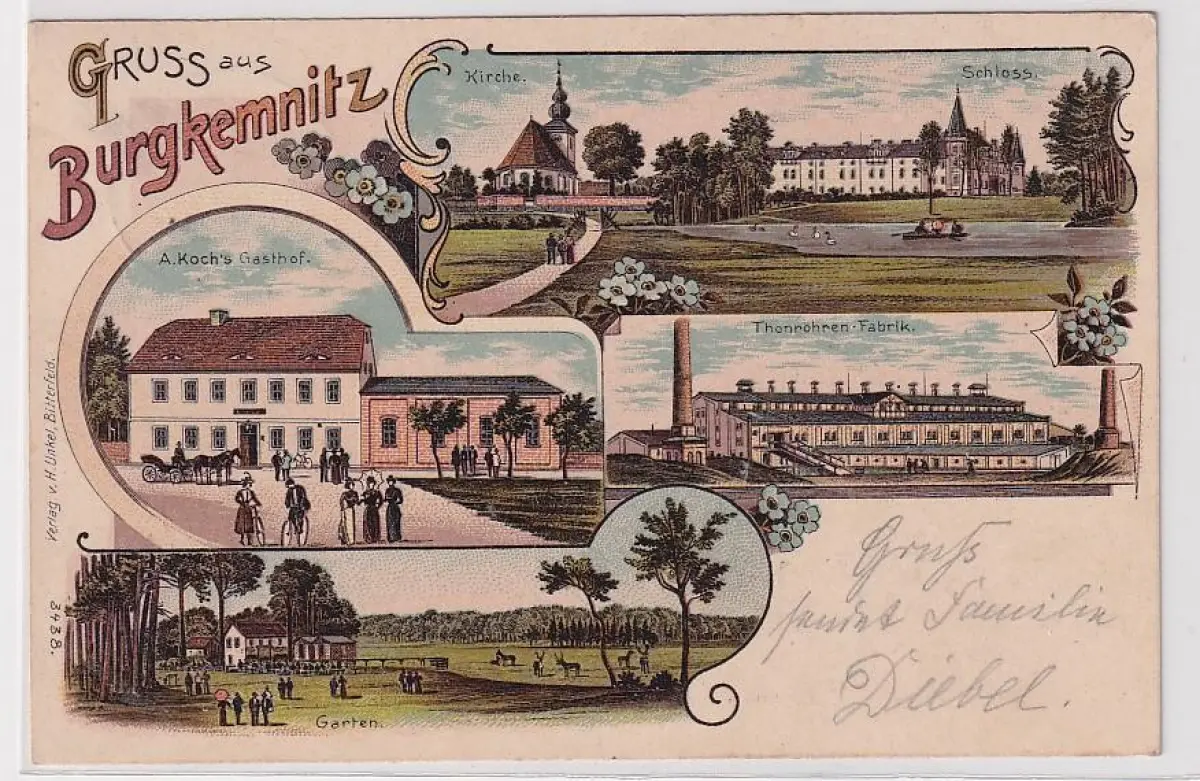 GRUSS aus
Burgkemnitz
Kirche.
Schloss.
A. Koch's Gasthof.
Thonröhren-Fabrik.
Verlag v. H. Unkel, Bitterfeld.
3438.
Garten.
Gruss
sendet Familie
Diebel.